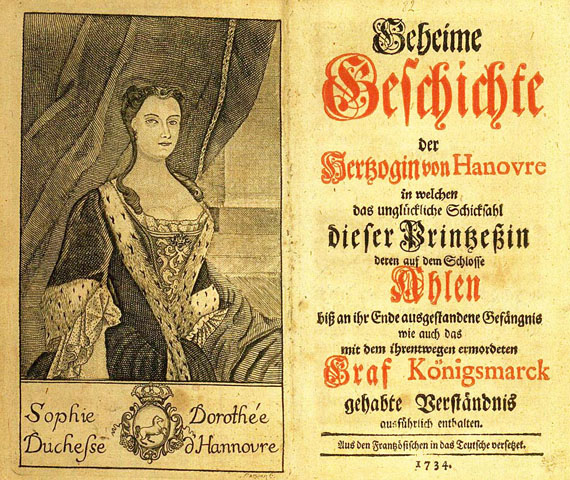 Sophie Dorothée
Duchesse d'Hannovre
Geheime
Geschichte
der
Hertzogin von Hanovre
in welchen
das unglückliche Schicksahl
dieser Printzeßin
deren auf dem Schlosse
Ahlen
biß an ihr Ende ausgestandene Gefängnis
wie auch das
mit dem ihrentwegen ermordeten
Graf Königsmarck
gehabte Verständnis
ausführlich enthalten.
Aus den Frantzösischen in das Teutsche versetzet.
1734.